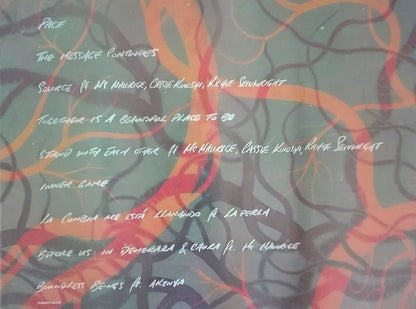 PACE
THE MESSAGE CONTINUES
SOURCE ft. Ms MAURICE, CASSIE KINOSHI, RICHIE SEIVWRIGHT
TOGETHER IS A BEAUTIFUL PLACE TO BE
STAND WITH EACH OTHER ft. Ms MAURICE, CASSIE KINOSHI, RICHIE SEIVWRIGHT
INNER GAME
LA CUMBIA ME ESTÁ LLAMANDO ft LA PERLA
BEFORE US: IN DEMERARA & CAURA ft. Ms MAURICE
BOUNDLESS BEINGS ft. AKENYA